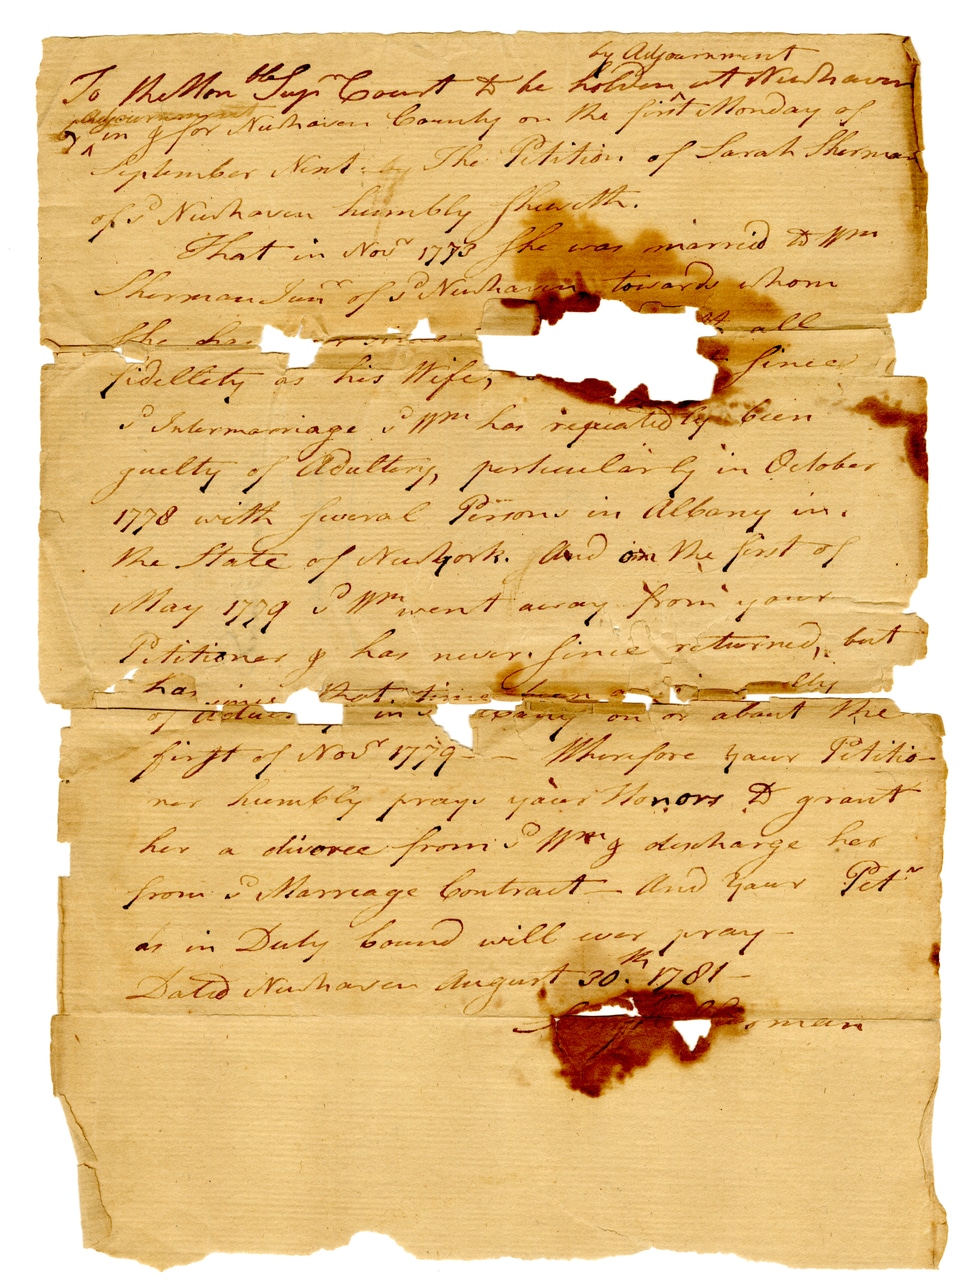 by Adjournment
To the Honble Supr Court to be holden at Newhaven
Adjournment
in & for Newhaven County on the first Monday of
September Next The Petition of Sarah Sherman
of sd Newhaven humbly Sheweth.
That in Novr 1773 She was married to Wm
Sherman Junr of sd Newhaven towards whom
She has all
fidellity as his Wife, Since
sd Intermarriage sd Wm has repeatedly been
guilty of Adultery, perticularly in October
1778 with several Persons in Albany in
the State of Newyork. And on the first of
May 1779 sd Wm went away from your
Petitioner & has never Since returned, but
has since that time been
of in on or about the
first of Novr 1779 - - Wherefore your Petitio-
ner humbly prays your Honors to grant
her a divorce from sd Wm & discharge her
from sd Marreage Contract - And your Petr
as in Duty bound will ever pray -
Dated Newhaven August 30.th 1781 -